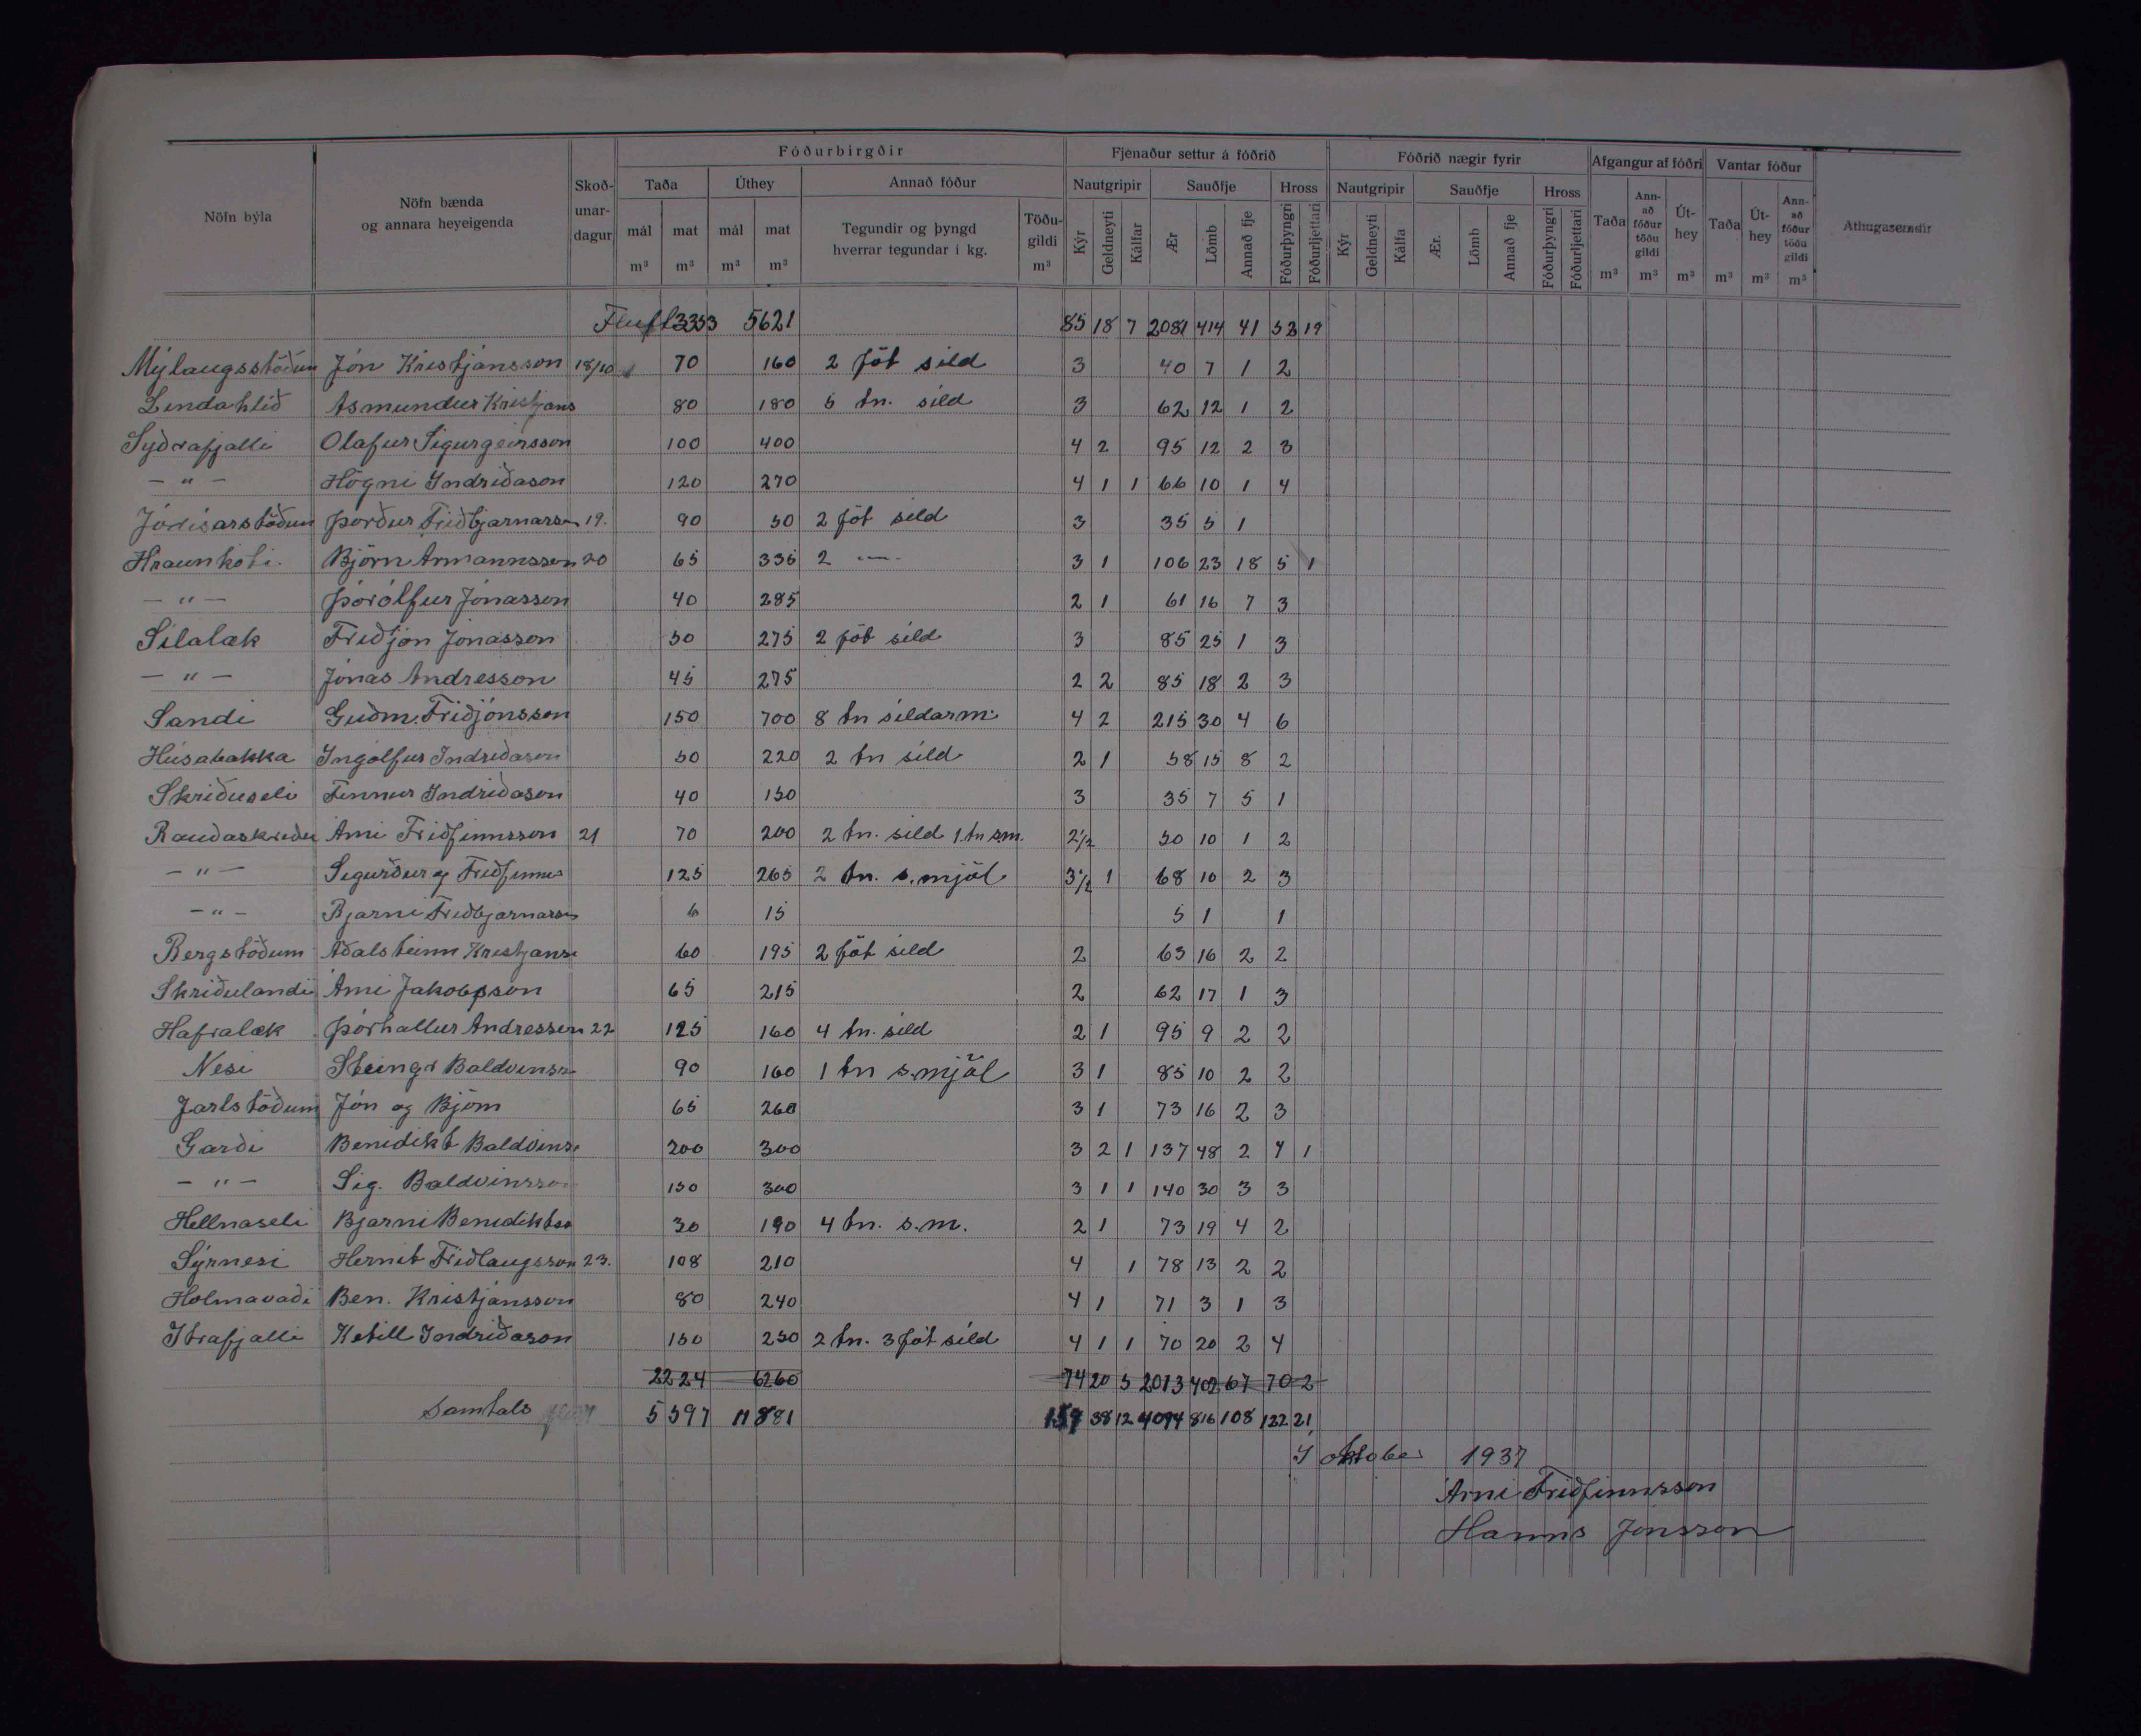 Fóðurbirgðir Fjenaður settur á fóðrið Fóðrið nægir fyrir Afgangur af fóðri Vantar fóður
Nöfn býla Nöfn bænda og annara heyeigenda Skoð-unar-dagur Taða Úthey Annað fóður Nautgripir Sauðfje Hross Nautgripir Sauðfje Hross Taða Ann-að fóður töðu gildi Út-hey Taða Út-hey Ann-að fóður töðu gildi Athugasemdir
mál m³ mat m³ mál m³ mat m³ Tegundir og þyngd hverrar tegundar í kg. Töðu-gildi m³ Kýr Geldneyti Kálfar Ær Lömb Annað fje Fóðurþyngri Fóðurljettari Kýr Geldneyti Kálfa Ær. Lömb Annað fje Fóðurþyngri Fóðurljettari m³ m³ m³ m³ m³ m³
Flutt 3353 5621 85 18 7 2081 414 41 52 19
Mýlaugsstöðum Jón Kristjánsson 18/10 70 160 2 föt síld 3 40 7 1 2
Lindahlíð Asmundur Kristjáns 80 180 5 tn. síld 3 62 12 1 2
Syðrafjalli Olafur Sigurgeirsson 100 400 4 2 95 12 2 3
— " — Högni Indriðason 120 270 4 1 1 66 10 1 4
Jódísarstöðum Þorður Friðbjarnarson 19. 90 50 2 föt síld 3 35 5 1
Hraunkoti. Björn Armannsson 20 65 335 2 —"— 3 1 106 23 18 5 1
— " — Þórólfur Jónasson 40 285 2 1 61 16 7 3
Sílalæk Friðjón Jónasson 50 275 2 föt síld 3 85 25 1 3
— " — Jónas Andresson 45 275 2 2 85 18 2 3
Sandi Guðm. Friðjónsson 150 700 8 tn síldarm: 4 2 215 30 4 6
Húsabakka Ingólfur Indriðason 50 220 2 tn síld 2 1 58 15 8 2
Skriðuseli Finnur Indriðason 40 150 3 35 7 5 1
Rauðaskriðu Árni Friðfinnsson 21 70 200 2 tn. síld 1. tn s.m. 2 1/2 50 10 1 2
— " — Sigurður og Friðfinnur 125 265 2 tn. s.mjöl 3 1/2 1 68 10 2 3
— " — Bjarni Friðbjarnars 6 15 5 1 1
Bergstöðum Aðalsteinn Kristjáns 60 195 2 föt síld 2 63 16 2 2
Skriðulandi Árni Jakobsson 65 215 2 62 17 1 3
Hafralæk Þórhallur Andresson 22 125 160 4 tn. síld 2 1 95 9 2 2
Nesi Steingr Baldvinsso 90 160 1 tn s.mjöl 3 1 85 10 2 2
Jarlstöðum Jón og Björn 65 260 3 1 73 16 2 3
Garði Benidikt Baldvins 200 300 3 2 1 137 48 2 4 1
— " — Sig. Baldvinsson 150 300 3 1 1 140 30 3 3
Hellnaseli Bjarni Benediktss 30 190 4 tn. s.m. 2 1 73 19 4 2
Sýrnesi Hernit Friðlaugsson 23. 108 210 4 1 78 13 2 2
Holmavaði Ben. Kristjánsson 80 240 4 1 71 3 1 3
Ytrafjalli Ketill Indriðason 150 250 2 tn. 3 föt síld 4 1 1 70 20 2 4
2224 6260 74 20 5 2013 402 67 70 2
Samtals 5597 11881 159 38 12 4094 816 108 122 21
Í oktober 1937
Árni Friðfinnsson
Hannes Jónsson